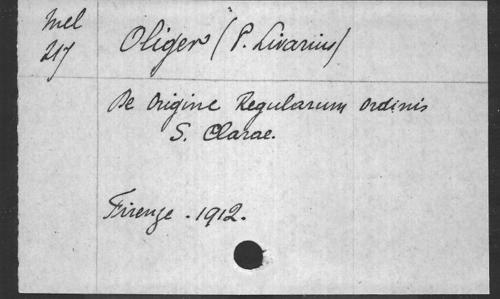 Mel
217
Oliger (P. Livarius)
De Origine Regularum Ordinis
S. Clarae.
Firenze - 1912.